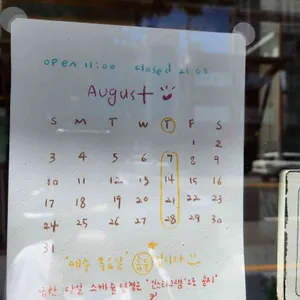 OPEN 11:00 closed 21:00
August
S M T W T F S
1 2
3 4 5 6 7 8 9
10 11 12 13 14 15 16
17 18 19 20 21 22 23
24 25 26 27 28 29 30
31
"매주 목요일" 휴무